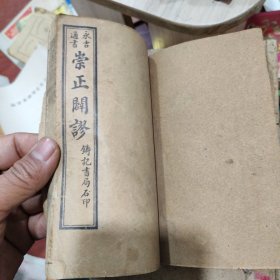 永古通書
崇正闢謬
鑄記書局石印